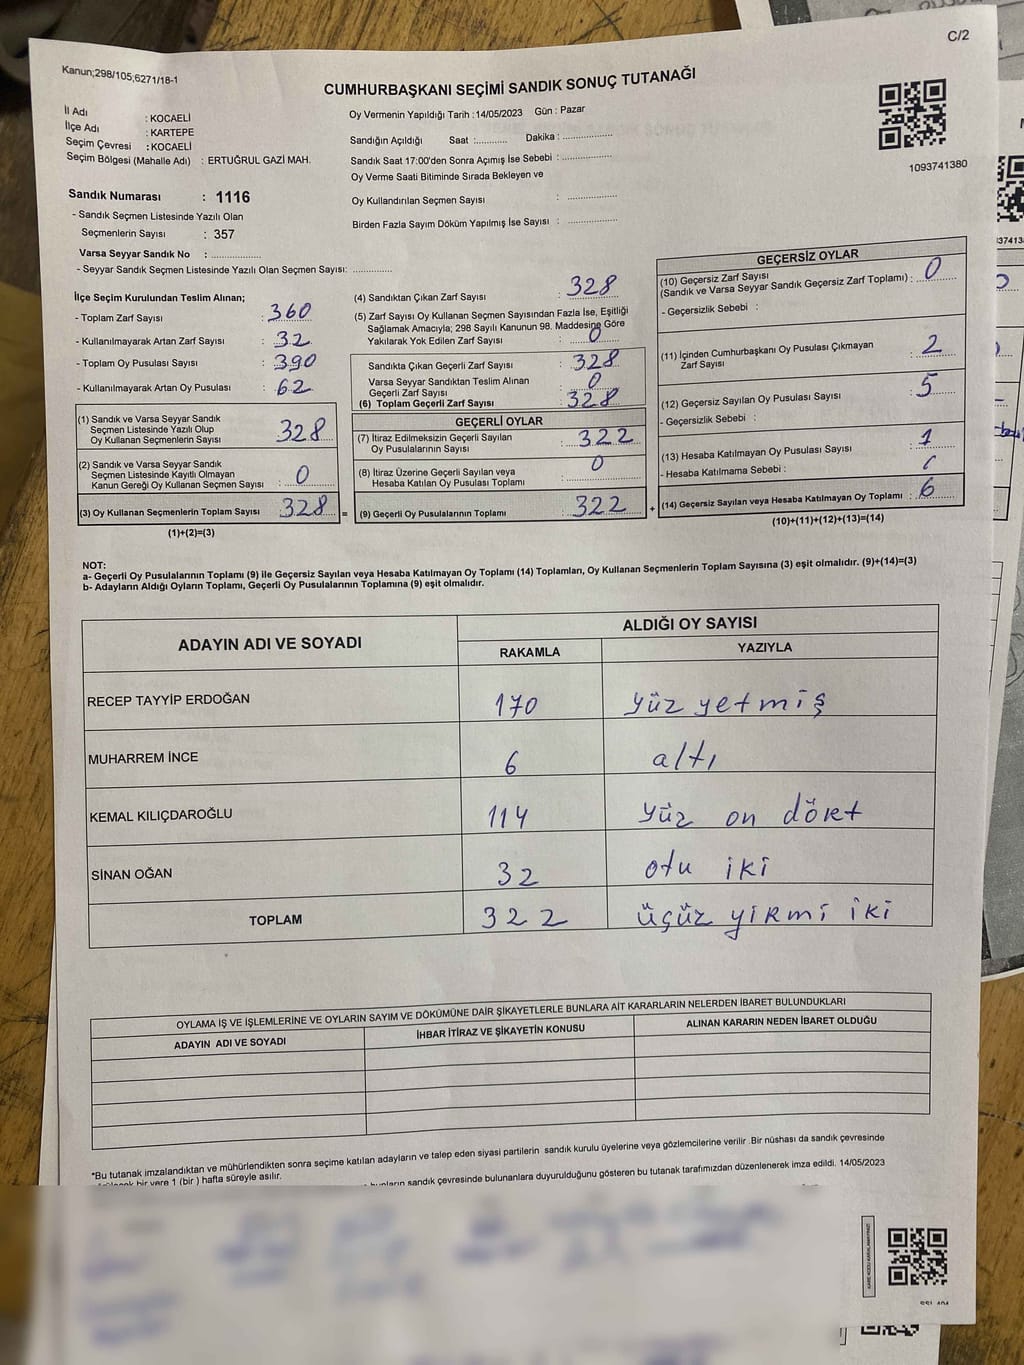 C/2
Kanun;298/105,6271/18-1
CUMHURBAŞKANI SEÇİMİ SANDIK SONUÇ TUTANAĞI
İl Adı : KOCAELİ
İlçe Adı : KARTEPE
Seçim Çevresi : KOCAELİ
Seçim Bölgesi (Mahalle Adı) : ERTUĞRUL GAZİ MAH.
Sandık Numarası : 1116
- Sandık Seçmen Listesinde Yazılı Olan
Seçmenlerin Sayısı : 357
Varsa Seyyar Sandık No : ................
- Seyyar Sandık Seçmen Listesinde Yazılı Olan Seçmen Sayısı: .............
Oy Vermenin Yapıldığı Tarih : 14/05/2023 Gün : Pazar
Sandığın Açıldığı Saat :........... Dakika : ................
Sandık Saat 17:00'den Sonra Açımış İse Sebebi : ................
Oy Verme Saati Bitiminde Sırada Bekleyen ve
Oy Kullandırılan Seçmen Sayısı : ................
Birden Fazla Sayım Döküm Yapılmış İse Sayısı : ................
1093741380
İlçe Seçim Kurulundan Teslim Alınan;
- Toplam Zarf Sayısı : 360
- Kullanılmayarak Artan Zarf Sayısı : 32
- Toplam Oy Pusulası Sayısı : 390
- Kullanılmayarak Artan Oy Pusulası : 62
(1) Sandık ve Varsa Seyyar Sandık
Seçmen Listesinde Yazılı Olup
Oy Kullanan Seçmenlerin Sayısı : 328
(2) Sandık ve Varsa Seyyar Sandık
Seçmen Listesinde Kayıtlı Olmayan
Kanun Gereği Oy Kullanan Seçmen Sayısı : 0
(3) Oy Kullanan Seçmenlerin Toplam Sayısı : 328 =
(1)+(2)=(3)
(4) Sandıktan Çıkan Zarf Sayısı : 328
(5) Zarf Sayısı Oy Kullanan Seçmen Sayısından Fazla İse, Eşitliği
Sağlamak Amacıyla; 298 Sayılı Kanunun 98. Maddesine Göre
Yakılarak Yok Edilen Zarf Sayısı : 0
Sandıkta Çıkan Geçerli Zarf Sayısı : 328
Varsa Seyyar Sandıktan Teslim Alınan
Geçerli Zarf Sayısı : 0
(6) Toplam Geçerli Zarf Sayısı : 328
GEÇERLİ OYLAR
(7) İtiraz Edilmeksizin Geçerli Sayılan
Oy Pusulasının Sayısı : 322
(8) İtiraz Üzerine Geçerli Sayılan veya
Hesaba Katılan Oy Pusulası Toplamı : 0
(9) Geçerli Oy Pusulalarının Toplamı : 322 +
GEÇERSİZ OYLAR
(10) Geçersiz Zarf Sayısı
(Sandık ve Varsa Seyyar Sandık Geçersiz Zarf Toplamı) : 0
- Geçersizlik Sebebi :
(11) İçinden Cumhurbaşkanı Oy Pusulası Çıkmayan
Zarf Sayısı : 2
(12) Geçersiz Sayılan Oy Pusulası Sayısı : 5
- Geçersizlik Sebebi :
(13) Hesaba Katılmayan Oy Pusulası Sayısı : 1
- Hesaba Katılmama Sebebi :
(14) Geçersiz Sayılan veya Hesaba Katılmayan Oy Toplamı : 6
(10)+(11)+(12)+(13)=(14)
NOT:
a- Geçerli Oy Pusulalarının Toplamı (9) ile Geçersiz Sayılan veya Hesaba Katılmayan Oy Toplamı (14) Toplamları, Oy Kullanan Seçmenlerin Toplam Sayısına (3) eşit olmalıdır. (9)+(14)=(3)
b- Adayların Aldığı Oyların Toplamı, Geçerli Oy Pusulalarının Toplamına (9) eşit olmalıdır.
ADAYIN ADI VE SOYADI ALDIĞI OY SAYISI
RAKAMLA YAZIYLA
RECEP TAYYİP ERDOĞAN 170 yüz yetmiş
MUHARREM İNCE 6 altı
KEMAL KILIÇDAROĞLU 114 yüz on dört
SİNAN OĞAN 32 otu iki
TOPLAM 322 üçüz yirmi iki
OYLAMA İŞ VE İŞLEMLERİNE VE OYLARIN SAYIM VE DÖKÜMÜNE DAİR ŞİKAYETLERLE BUNLARA AİT KARARLARIN NELERDEN İBARET BULUNDUKLARI
ADAYIN ADI VE SOYADI İHBAR İTİRAZ VE ŞİKAYETİN KONUSU ALINAN KARARIN NEDEN İBARET OLDUĞU
*Bu tutanak imzalandıktan ve mühürlendikten sonra seçime katılan adayların ve talep eden siyasi partilerin sandık kurulu üyelerine veya gözlemcilerine verilir .Bir nüshası da sandık çevresinde
bir yere 1 (bir ) hafta süreyle asılır.
bunların sandık çevresinde bulunanlara duyurulduğunu gösteren bu tutanak tarafımızdan düzenlenerek imza edildi. 14/05/2023